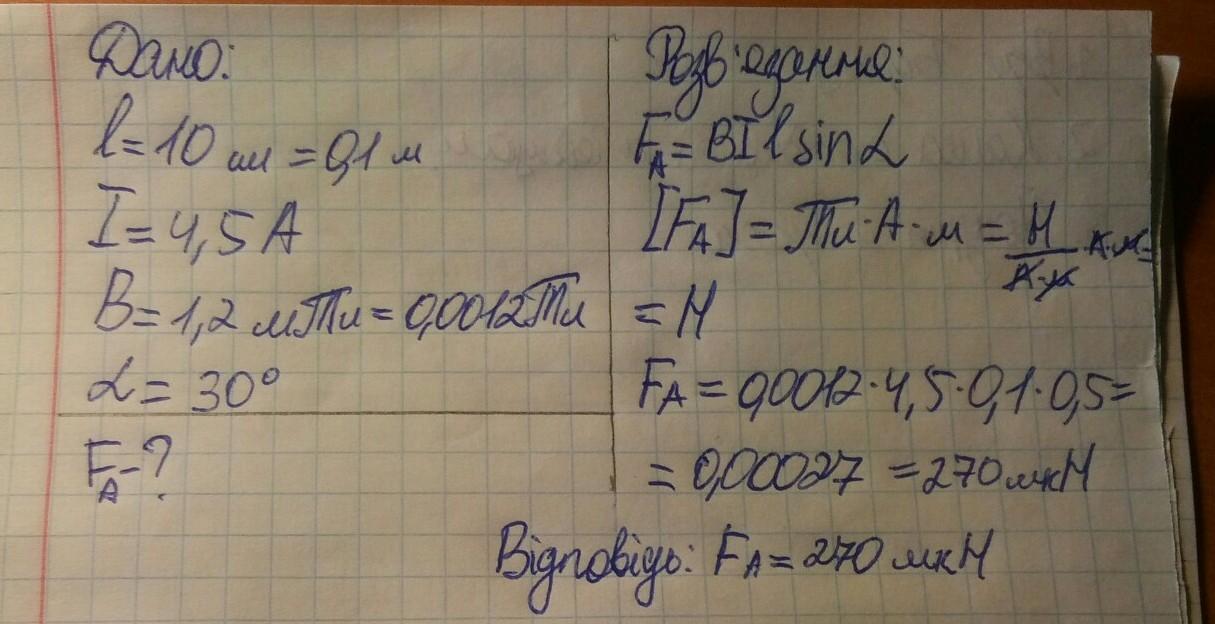 Дано:
l = 10 см = 0,1 м
I = 4,5 А
B = 1,2 мТл = 0,0012 Тл
α = 30°
F_A - ?
Розв'язання:
F_A = BIl sin α
[F_A] = Тл · А · м = Н/(А·м) · А·м =
= Н
F_A = 0,0012 · 4,5 · 0,1 · 0,5 =
= 0,00027 = 270 мкН
Відповідь: F_A = 270 мкН